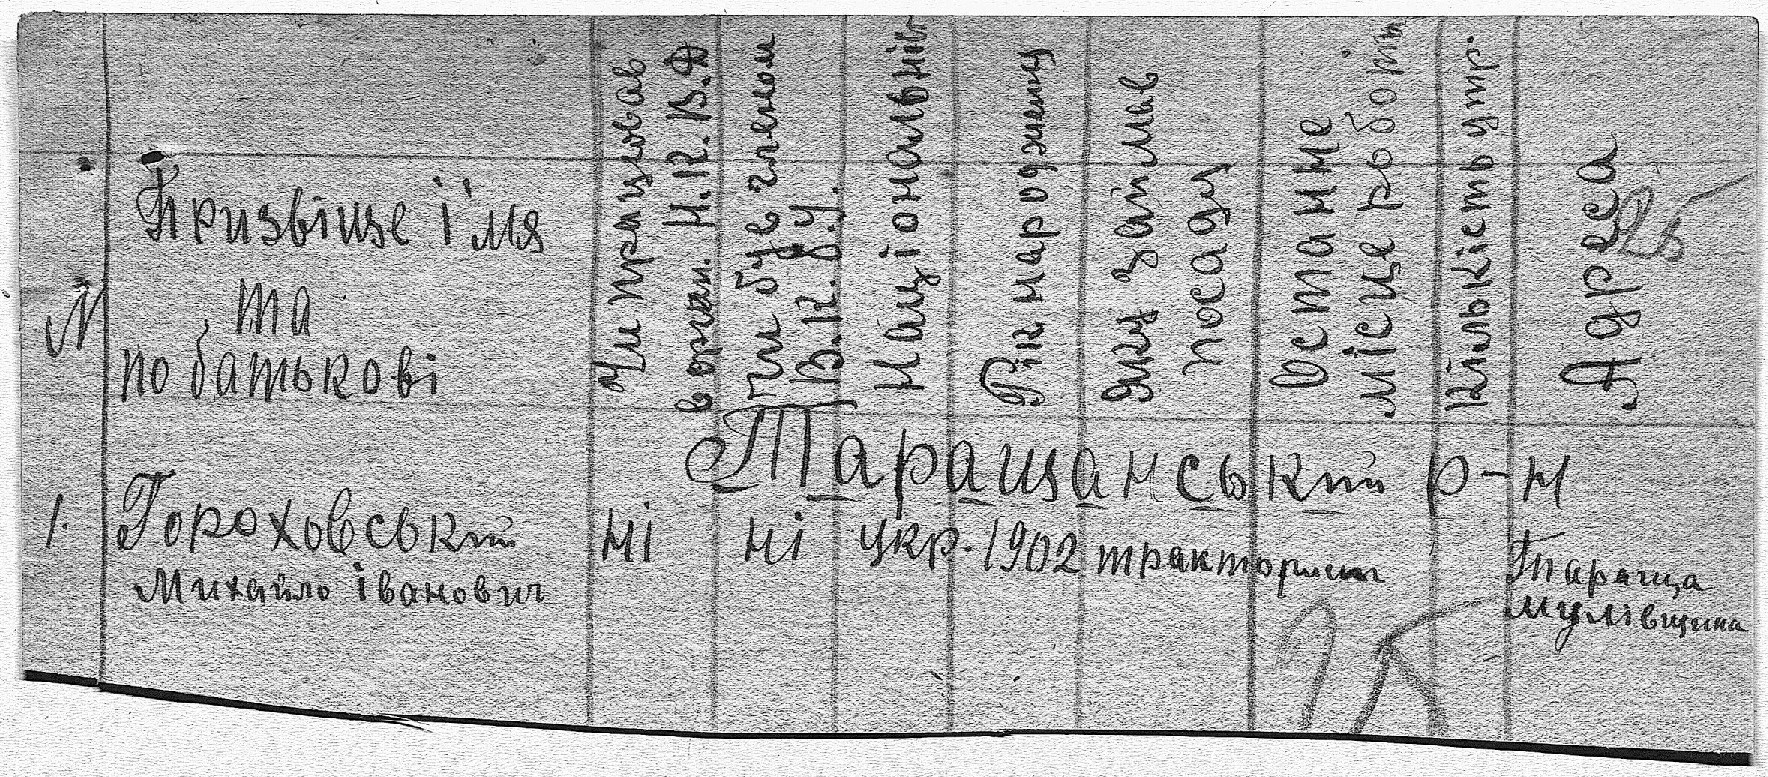 №
Призвіще і'мя
та
по батькові
Чи працював
в орган. Н.К.В.Д
чи був членом
В.К.П.
Національніс
Рік народженну
Яку займав
посаду
Останне
місце роботи
Кількість утр.
Адреса
Таращанський р-н
1. Гороховський ні ні укр. 1902 тракторист Тараща
Михайло Іванович Мулівщина